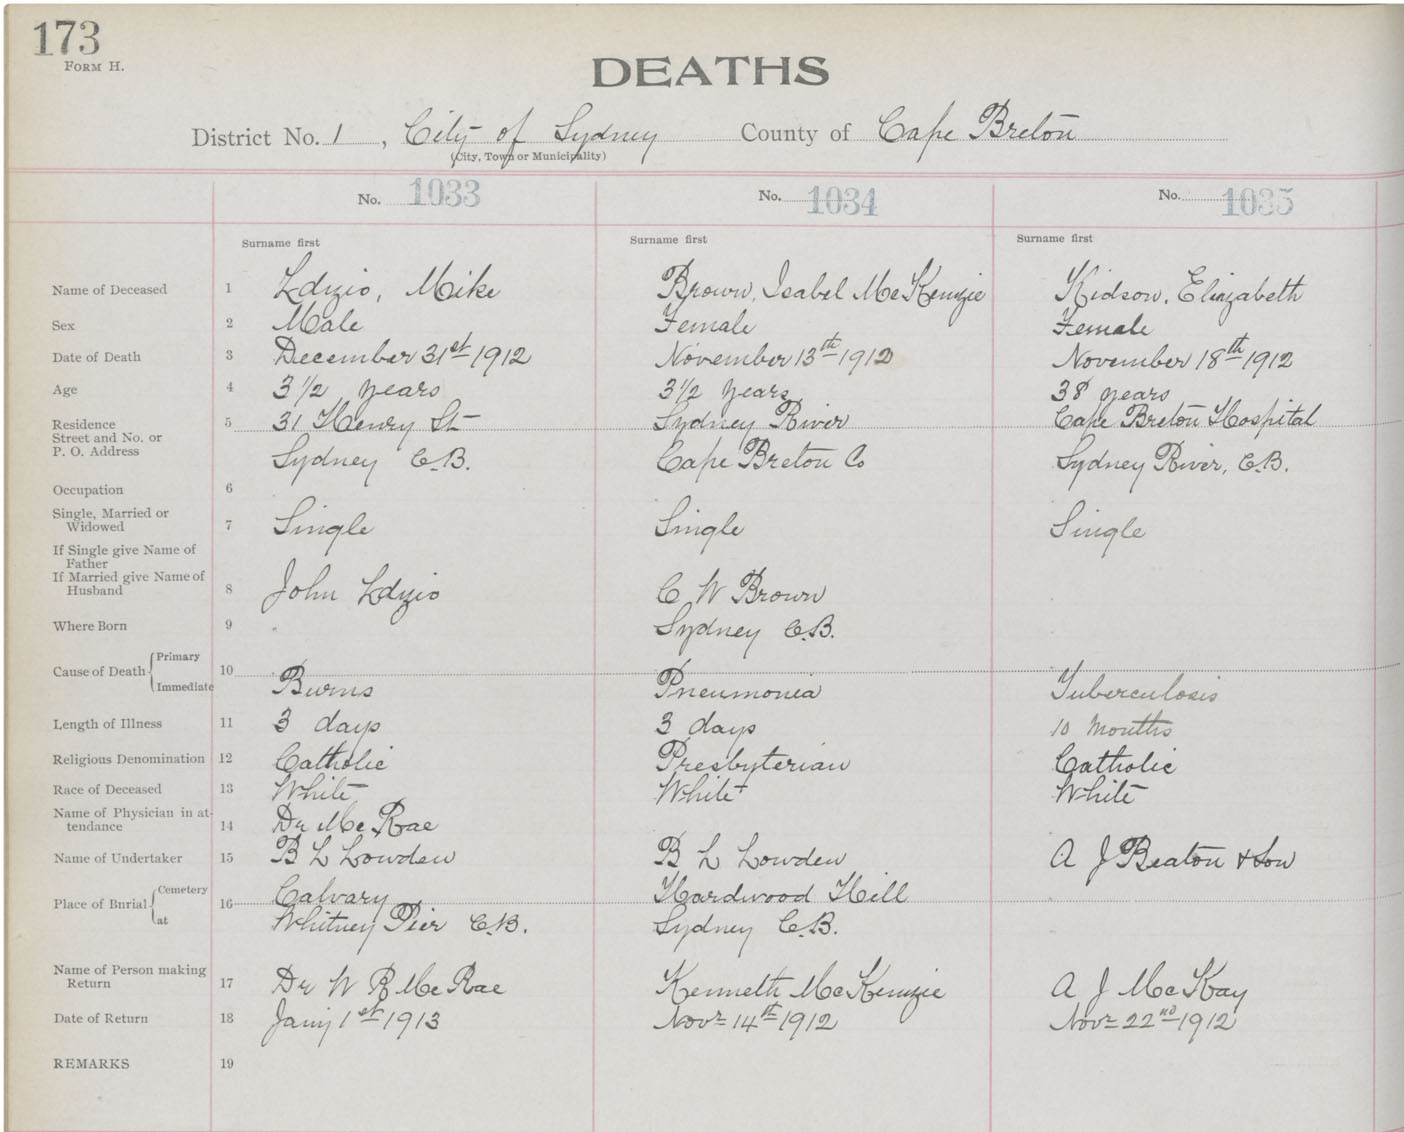 173
FORM H.
DEATHS
District No. 1, City of Sydney County of Cape Breton
(City, Town or Municipality)
No. 1033 No. 1034 No. 1035
Surname first Surname first Surname first
Name of Deceased 1 Zdzio, Mike Brown, Isabel McKenzie Kidson, Elizabeth
Sex 2 Male Female Female
Date of Death 3 December 31st 1912 November 13th 1912 November 18th 1912
Age 4 3 1/2 years 3 1/2 years 38 years
Residence 5 31 Henry St Sydney River Cape Breton Hospital
Street and No. or
P. O. Address Sydney C.B. Cape Breton Co Sydney River, C.B.
Occupation 6
Single, Married or
Widowed 7 Single Single Single
If Single give Name of
Father
If Married give Name of
Husband 8 John Zdzio C W Brown
Where Born 9 Sydney C.B.
Cause of Death Primary 10
Immediate Burns Pneumonia Tuberculosis
Length of Illness 11 3 days 3 days 10 Months
Religious Denomination 12 Catholic Presbyterian Catholic
Race of Deceased 13 White White White
Name of Physician in at-
tendance 14 Dr McRae
Name of Undertaker 15 B L Lowden B L Lowden A J Beaton & Son
Place of Burial Cemetery 16 Calvary Hardwood Hill
at Whitney Pier C.B. Sydney C.B.
Name of Person making
Return 17 Dr W R McRae Kenneth McKenzie A J McKay
Date of Return 18 Jany 1st 1913 Novr 14th 1912 Novr 22nd 1912
REMARKS 19